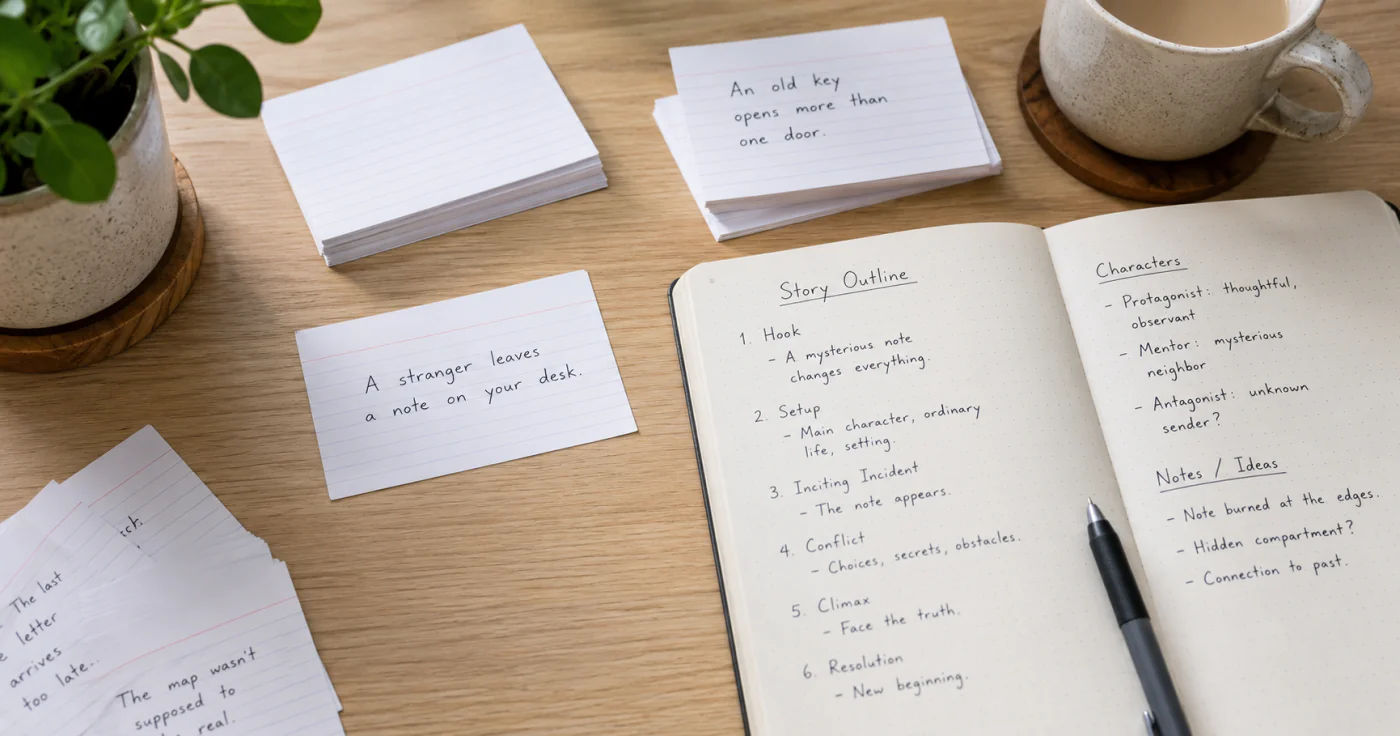 An old key
opens more than
one door.
A stranger leaves
a note on your desk.
The last
letter
arrives
too late...
The map wasn't
supposed to
real.
Story Outline
1. Hook
- A mysterious note
changes everything.
2. Setup
- Main character, ordinary
life, setting.
3. Inciting Incident
- The note appears.
4. Conflict
- Choices, secrets, obstacles.
5. Climax
- Face the truth.
6. Resolution
- New beginning.
Characters
- Protagonist: thoughtful,
observant
- Mentor: mysterious
neighbor
- Antagonist: unknown
sender?
Notes / Ideas
- Note burned at the edges.
- Hidden compartment?
- Connection to past.